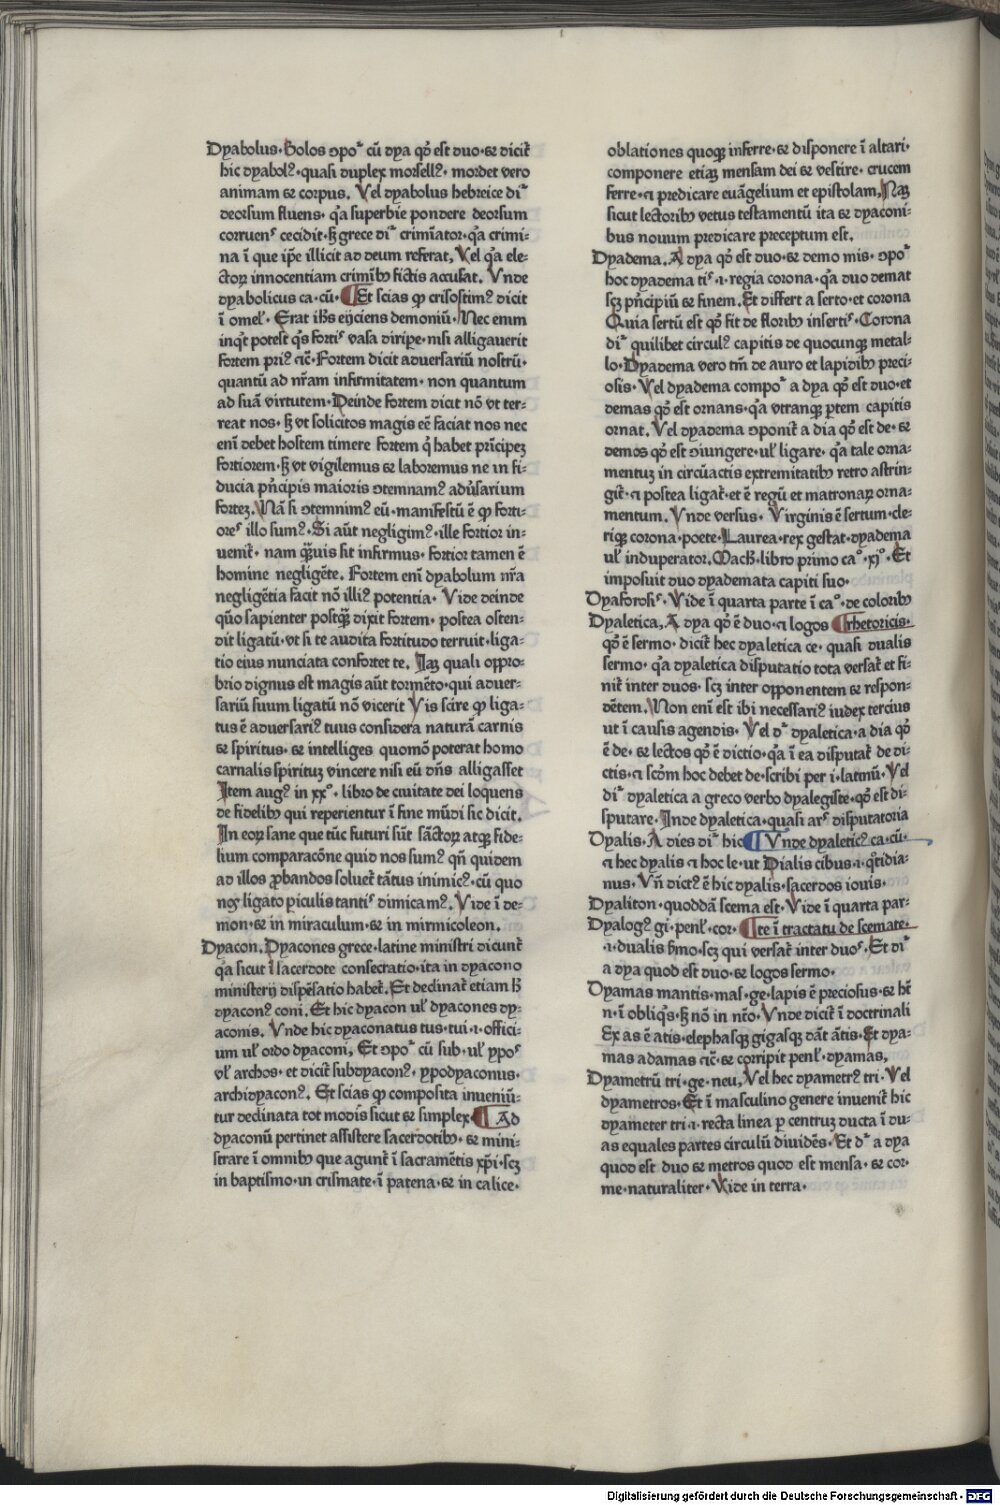 Dyabolus·Bolos ↄpoꝰ cū dya qđ est duo·& dicit̄
hic dyabolꝰ·quasi duplex morsellꝰ·mordet vero
animam & corpus. Vel dyabolus hebreice dr̄
deorsum fluens·qꝛa superbie pondere deorsum
corruenˢ cecidit·sꝫ grece dr̄ crimīator·qꝛa crimi-
na ī que ip̄e illicit ad deum referat. Vel qꝛa ele-
ctoꝝ innocentiam crimībꝫ fictis accusat. Vnde
dyabolicus ca·cū·¶Et scias ꝙ crisostimꝰ dicit
ī omel'. Erat ih̄s eijciens demoniū·Nec enim
inqꝛt potest qꝛs fortiˢ vasa diripe·nisi alligauerit
fortem priꝰ ⁊c̄·Fortem dicit aduersariū nostrū·
quantū ad nr̄am infirmitatem·non quantum
ad suā virtutem·Deinde fortem dicit nō vt ter-
reat nos·sꝫ vt solicitos magis eē faciat nos nec
enī debet hostem timere fortem qꝛ habet prīcipeꝫ
fortiorem·sꝫ vt vigilemus & laboremus ne in fi-
ducia pn̄cipis maioris ↄtemnamꝰ adūsarium
forteꝫ. Nā si ↄtemnimꝰ eū·manifestū ē ꝙ forti-
oreˢ illo sumꝰ·Si aūt negligimꝰ·ille fortior in-
uenit̄·nam qꝫuis sit infirmus·fortior tamen ē
homine negligēte. Fortem enī dyabolum nr̄a
negligētia facit nō illiꝰ potentia·Vide deinde
qūo sapienter postqꝫ dixit fortem·postea osten-
dit ligatū·vt si te audita fortitudo terruit·liga-
tio eius nunciata confortet te. Iaꝫ quali oppro-
brio dignus est magis aūt tormēto·qui aduer-
sariū suum ligatū nō vicerit Vis scire ꝙ liga-
tus ē aduersariꝰ tuus considera naturā carnis
& spiritus·& intelliges quomō poterat homo
carnalis spirituꝫ vincere nisi eū dn̄s alligasset
Item augꝰ in xxº·libro de ciuitate dei loquens
de fidelibꝫ qui reperientur ī fine mūdi sic dicit.
In eoꝝ sane que tūc futuri sūt sāctoꝝ atqꝫ fide-
lium comparacōne quid nos sumꝰ qn̄ quidem
ad illos ꝓbandos soluet̄ tātus inimicꝰ·cū quo
nos ligato ꝑiculis tantiˢ dimicamꝰ. Vide ī de-
mon·& in miraculum·& in mirmicoleon.
Dyacon. Dyacones grece·latine ministri dicunt̄
qꝛa sicut ī sacerdote consecratio·ita in dyacono
ministerij dispēsatio habet̄. Et declinat̄ etiam h̄
dyaconꝰ coni. Et hic dyacon ul' dyacones dy-
aconis. Vnde hic dyaconatus tus·tui·i·offici-
um ul' ordo dyaconi. Et ↄpoꝰ cū sub·ul' ypoˢ
vl' archos·et dicit̄ subdyaconꝰ·ypodyaconus·
archidyaconꝰ. Et scias ꝙ composita inueniū-
tur declinata tot modis sicut & simplex ¶Ad
dyaconū pertinet assistere sacerdotibꝫ·& mini-
strare ī omnibꝫ que agunt̄ ī sacramētis xp̄i·scꝫ
in baptismo·in crismate·ī patena·& in calice·
oblationes quoqꝫ inferre·& disponere ī altari·
componere etiaꝫ mensam dei & vestire·crucem
ferre·⁊ predicare euāgelium et epistolam. Naꝫ
sicut lectoribꝫ vetus testamentū ita & dyaconi-
bus nouum predicare preceptum est.
Dyadema. A dya qđ est duo·& demo mis·ↄpoꝰ
hoc dyadema tiˢ·i·regia corona·qꝛa duo demat
scꝫ pn̄cipiū & finem. Et differt a serto·et corona
Quia sertū est qđ fit de floribꝫ insertiˢ·Corona
dr̄ quilibet circulꝰ capitis de quocunqꝫ metal-
lo·Dyadema vero tm̄ de auro et lapidibꝫ preci-
osis·Vel dyadema compoꝰ a dya qđ est duo·et
demas qđ est ornans·qꝛa vtranqꝫ ꝑtem capitis
ornat. Vel dyadema ↄponit̄ a dia qđ est de·&
demos qđ est ↄiungere·ul' ligare·qꝛa tale orna-
mentuꝫ in circūactis extremitatibꝫ retro astrin-
git̄·⁊ postea ligat̄·et ē regū et matronaꝝ orna-
mentum. Vnde versus·Virginis ē sertum·cle-
riqꝫ corona·poete·Laurea·rex gestat·dyadema
ul' induperator. Mach̄·libro primo caº·xjº·Et
imposuit duo dyademata capiti suo·
Dyaforosiˢ·Vide ī quarta parte ī caº·de coloribꝫ
Dyaletica. A dya qđ ē duo·⁊ logos ¶rhetoricis·
qđ ē sermo·dicit̄ hec dyaletica ce·quasi dualis
sermo·qꝛa dyaletica disputatio tota versat̄ et fi-
nit̄ inter duos·scꝫ inter opponentem & respon-
dētem. Non enī est ibi necessariꝰ iudex tercius
ut ī causis agendis·Vel dꝛ dyaletica·a dia qđ
ē de·& lectos qđ ē dictio·qꝛa ī ea disputat̄ de di-
ctis·⁊ scđm hoc debet de·scribi per i·latinū·Vel
dr̄ dyaletica a greco verbo dyalegiste·qđ est di-
sputare·Inde dyaletica·quasi arˢ disputatoria
Dyalis·A dies dr̄ hic ¶Vnde dyaleticꝰ ca·cū·
⁊ hec dyalis ⁊ hoc le·ut Dialis cibus·i·qꝛtidia-
nus. Vn̄ dictꝰ ē hic dyalis·sacerdos iouis·
Dyaliton·quoddā scema est·Vide ī quarta par-
Dyalogꝰ gi·penl'·cor·¶te ī tractatu de scemate·
·i·dualis s̄mo·scꝫ qui versat̄ inter duoˢ. Et dr̄
a dya quod est duo·& logos sermo·
Dyamas mantis·mas·ge·lapis ē preciosus·& h̄t
n·ī obliqꝛs·sꝫ nō in nr̄o·Vnde dicit̄ ī doctrinali
Ex as ē atis·elephasqꝫ gigasqꝫ dāt ātis·Et dya-
mas adamas ⁊c̄·& corripit penl'·dyamas.
Dyametrū tri·ge·neu. Vel hec dyametrꝰ tri·Vel
dyametros·Et ī masculino genere inuenit̄ hic
dyameter tri·i·recta linea ꝑ centruꝫ ducta ī du-
as equales partes circulū diuidēs·Et dꝛ a dya
quod est duo & metros quod est mensa·& cor·
me·naturaliter·Vide in terra·
Digitalisierung gefördert durch die Deutsche Forschungsgemeinschaft - DFG